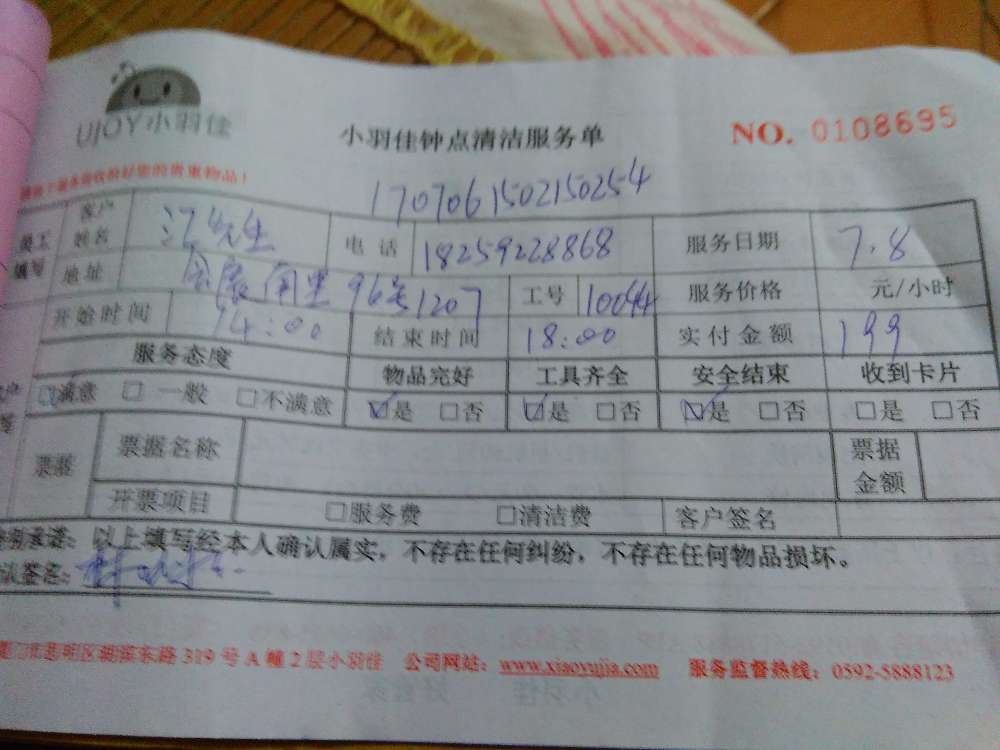 UJOY小羽佳
小羽佳钟点清洁服务单 NO. 0108695
贵重物品！
170706150215 0254
客户姓名 江先生 电话 18259228868 服务日期 7.8
地址 南里96号1207 工号 10064 服务价格 元/小时
开始时间 14:00 结束时间 18:00 实付金额 199
服务态度 物品完好 工具齐全 安全结束 收到卡片
☑满意 □一般 □不满意 ☑是 □否 ☑是 □否 ☑是 □否 □是 □否
票据 票据名称 票据金额
开票项目 □服务费 □清洁费 客户签名
承诺：以上填写经本人确认属实，不存在任何纠纷，不存在任何物品损坏。
认签名：
厦门市思明区湖滨东路319号A幢2层小羽佳 公司网站：www.xiaoyujia.com 服务监督热线：0592-5888123